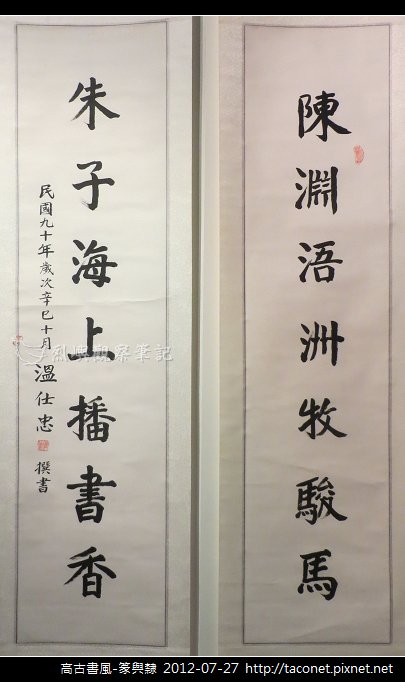 陳淵浯洲牧駿馬
朱子海上播書香
民國九十年歲次辛巳十月
溫仕忠
撰書
高古書風-篆與隸 2012-07-27 http://taconet.pixnet.net